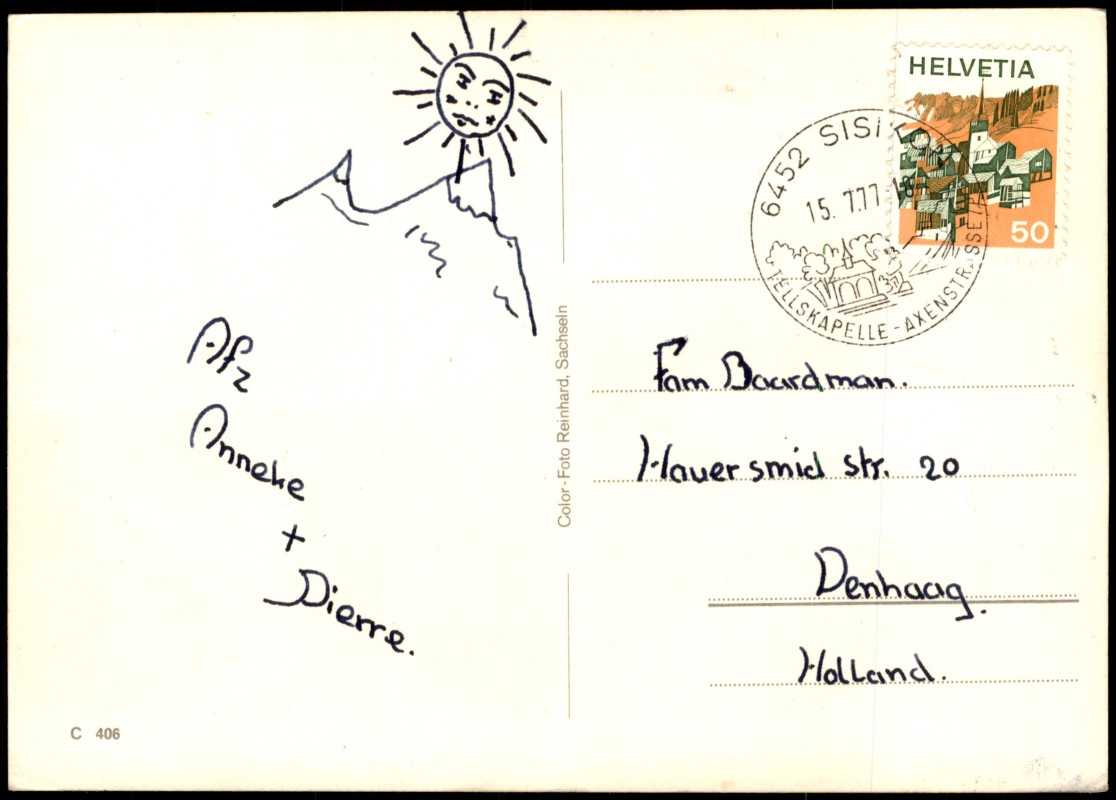 Afz
Anneke
+
Pierre.
C 406
Color-Foto Reinhard, Sachseln
HELVETIA
50
6452 SISIKON
15.7.77-18
TELLSKAPELLE-AXENSTRASSE
Fam Baardman.
Hauersmid str. 20
Denhaag.
Holland.